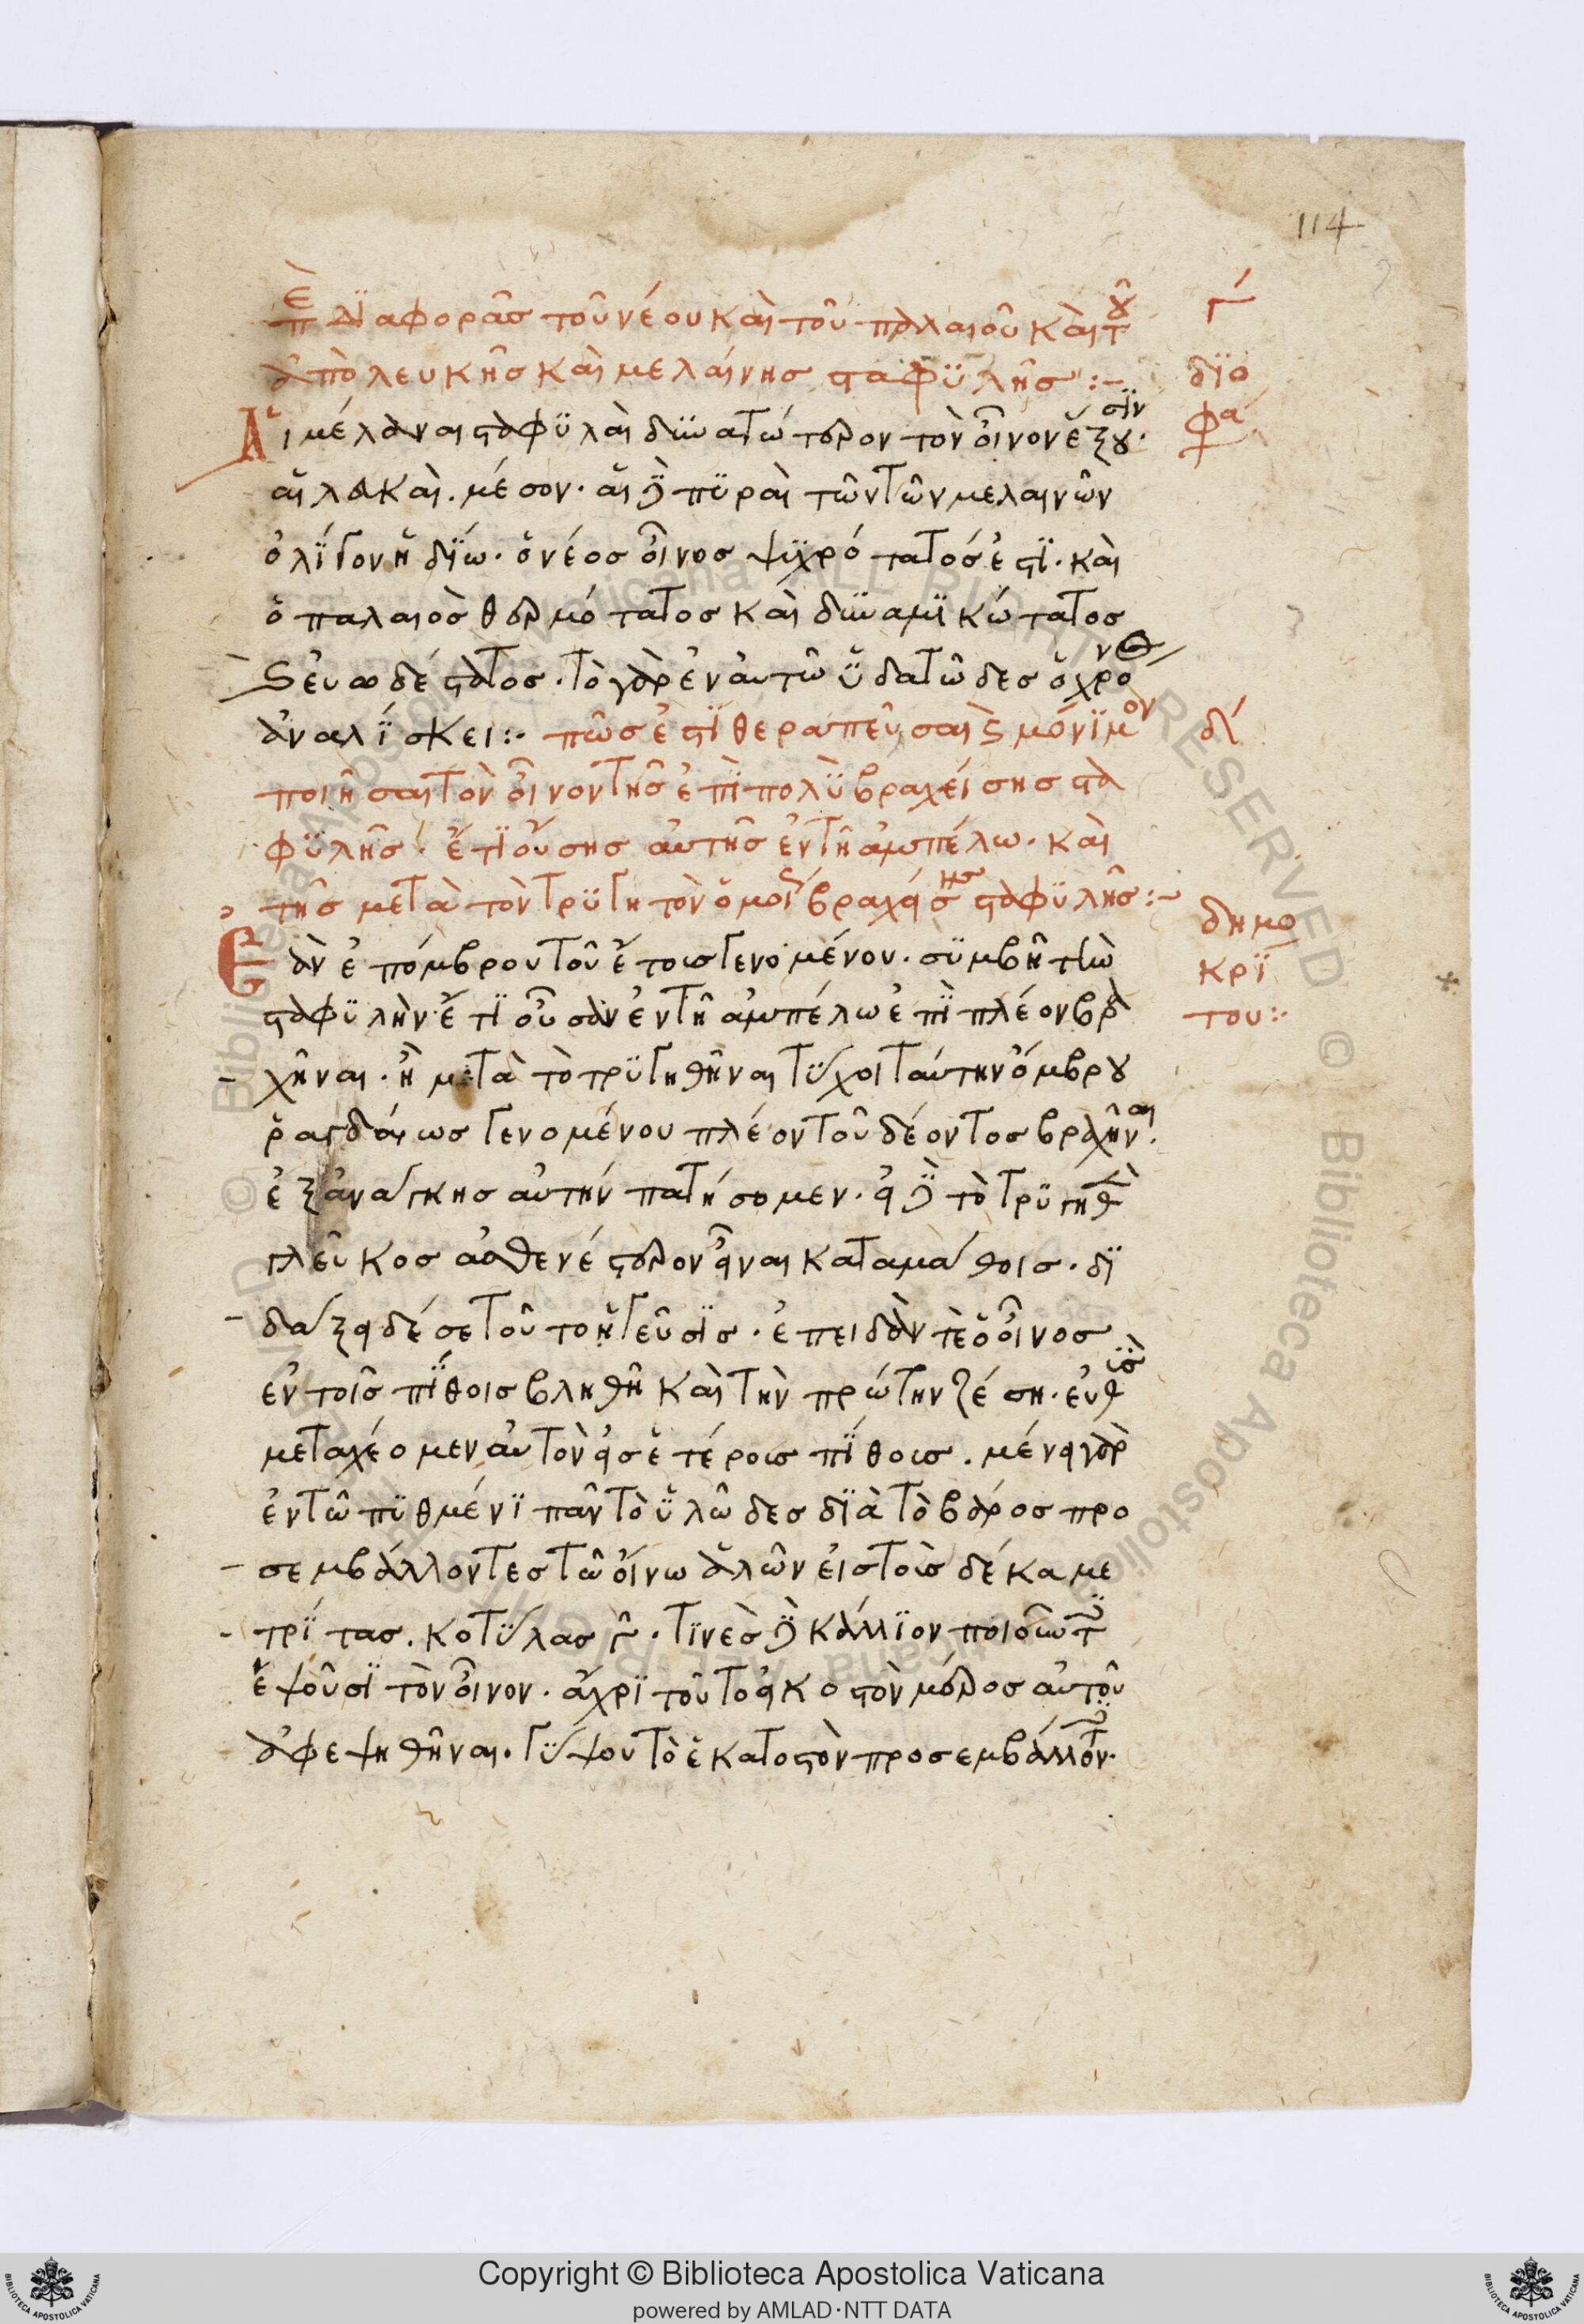 114
πε διαφορᾶσ τοῦ νέου καὶ τοῦ παλαιοῦ καὶ τοῦ
γ´
ἀπὸ λευκῆσ καὶ μελαίνησ σταφϋλῆσ :–
δϊο
Αἱ μέλαναι σταφϋλαὶ δϋνατώτερον τὸν οἶνον ἕξουσϊν·
φά
αἱ λευκαὶ. μέσον· αἱ δὲ πϋραὶ τῶν τῶν μελαινῶν
ὀλΐγον ἡδΐω· ὁ νέοσ οἶνοσ ψϋχρότατόσ ἐστϊ· καὶ
ὁ παλαιὸσ θερμότατοσ καὶ δϋναμϊκώτατοσ
ϛ εὐωδέστατοσ· τὸ γὰρ ἐν αὐτῶ ὑδατῶδεσ ὁ χρόνοσ
ἀναλΐσκει :· πῶσ ἐστϊ θεραπεῦσαι ϛ μόνϊμον
δΐ
ποιῆσαι τὸν οἶνον τῆσ ἐπϊ πολϋ βραχείσησ στα
φϋλῆσ· ἔτϊ οὔσησ αὐτῆσ ἐν τῆ ἀμπέλω· καὶ
τῆσ μετὰ τὸν τρϋγητὸν ὁμοΐ βραχείσησ σταφϋλῆσ :–
δημο
Ἐὰν ἐπόμβρου τοῦ ἔτουσ γενομένου· σϋμβῆ τὴν
κρΐ
σταφϋλὴν ἔτϊ οὖσαν ἐν τῆ ἀμπέλω ἐπϊ πλέον βρα
του :·
χῆναι· ἢ μετὰ τὸ τρϋγηθῆναι τΰχοι ταύτην ὄμβρου
ῥαγδαίωσ γενομένου πλέον τοῦ δέοντοσ βραχῆναι·
ἐξ ἀνάγκησ αὐτήν πατήσομεν· εἰ δὲ τὸ τρϋγηθὲν
γλεῦκοσ ἀσθενέστερον εἶναι καταμάθοισ· δϊ
δάξει δέ σε τοῦτο ἡ γεῦσϊσ· ἐπειδὰν τὲ ὁ οἶνοσ
ἐν τοῖσ πΐθοισ βληθῆ καὶ τὴν πρώτην ζέση· εὐθὺσ
μεταχέομεν αὐτὸν εἰσ ἑτέροισ πΐθοισ. μένει γὰρ
ἐν τῶ πϋθμένϊ πᾶν τὸ ὑλῶδεσ δϊὰ τὸ βάροσ προ
σεμβάλλοντεσ τῶ οἴνω ἁλῶν εἰσ τοὺσ δέκα με
τρΐτασ. κοτΰλασ γ̑· τϊνὲσ δὲ κάλλϊον ποιοῦντ
ἕψοῦσϊ τὸν οἶνον· ἄχρϊ τοῦ τὸ εἰκοστὸν μέροσ αὐτοῦ
ἀφεψηθῆναι· γΰψου τὸ ἑκατοστὸν προσεμβάλλοντ·
Copyright © Biblioteca Apostolica Vaticana
powered by AMLAD·NTT DATA